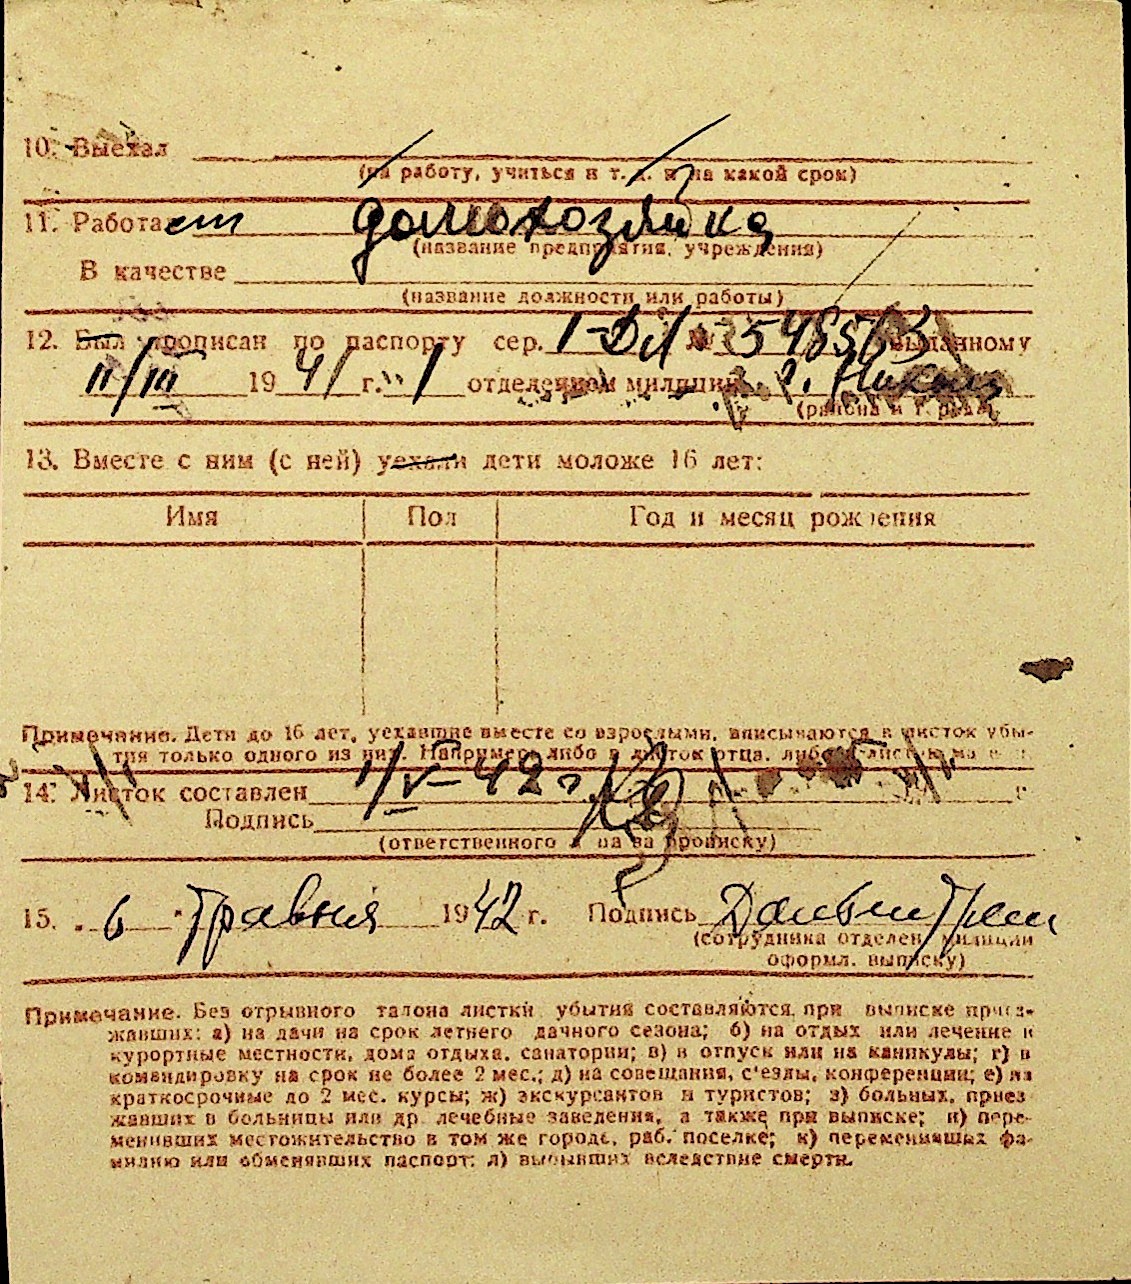 10. Выехал
(на работу, учиться и т. д. и на какой срок)
11. Работает домохозяйка
(название предприятия, учреждения)
В качестве
(название должности или работы)
12. Был прописан по паспорту сер. № 548563 выданному
11/III 1941 г. 1 отделением милиции
(района и г.
13. Вместе с ним (с ней) уехали дети моложе 16 лет:
Имя Пол Год и месяц рождения
Примечание. Дети до 16 лет, уехавшие вместе со взрослыми, вписываются в листок убы-
тия только одного из них. Например либо в листок отца, либо в листок
14. Листок составлен 1/V-42 г.
Подпись
(ответственного за прописку)
15. 6 травня 1942 г. Подпись
(сотрудника отделен. милиции
оформл. выписку)
Примечание. Без отрывного талона листки убытия составляются при выписке приез-
жавших: а) на дачи на срок летнего дачного сезона; б) на отдых или лечение в
курортные местности, дома отдыха, санатории; в) в отпуск или на каникулы; г) в
командировку на срок не более 2 мес.; д) на совещания, с'езды, конференции; е) на
краткосрочные до 2 мес. курсы; ж) экскурсантов и туристов; з) больных, приез
жавших в больницы или др. лечебные заведения, а также при выписке; и) пере-
менивших местожительство в том же городе, раб. поселке; к) переменивших фа-
милию или обменявших паспорт; л) выбывших вследствие смерти.